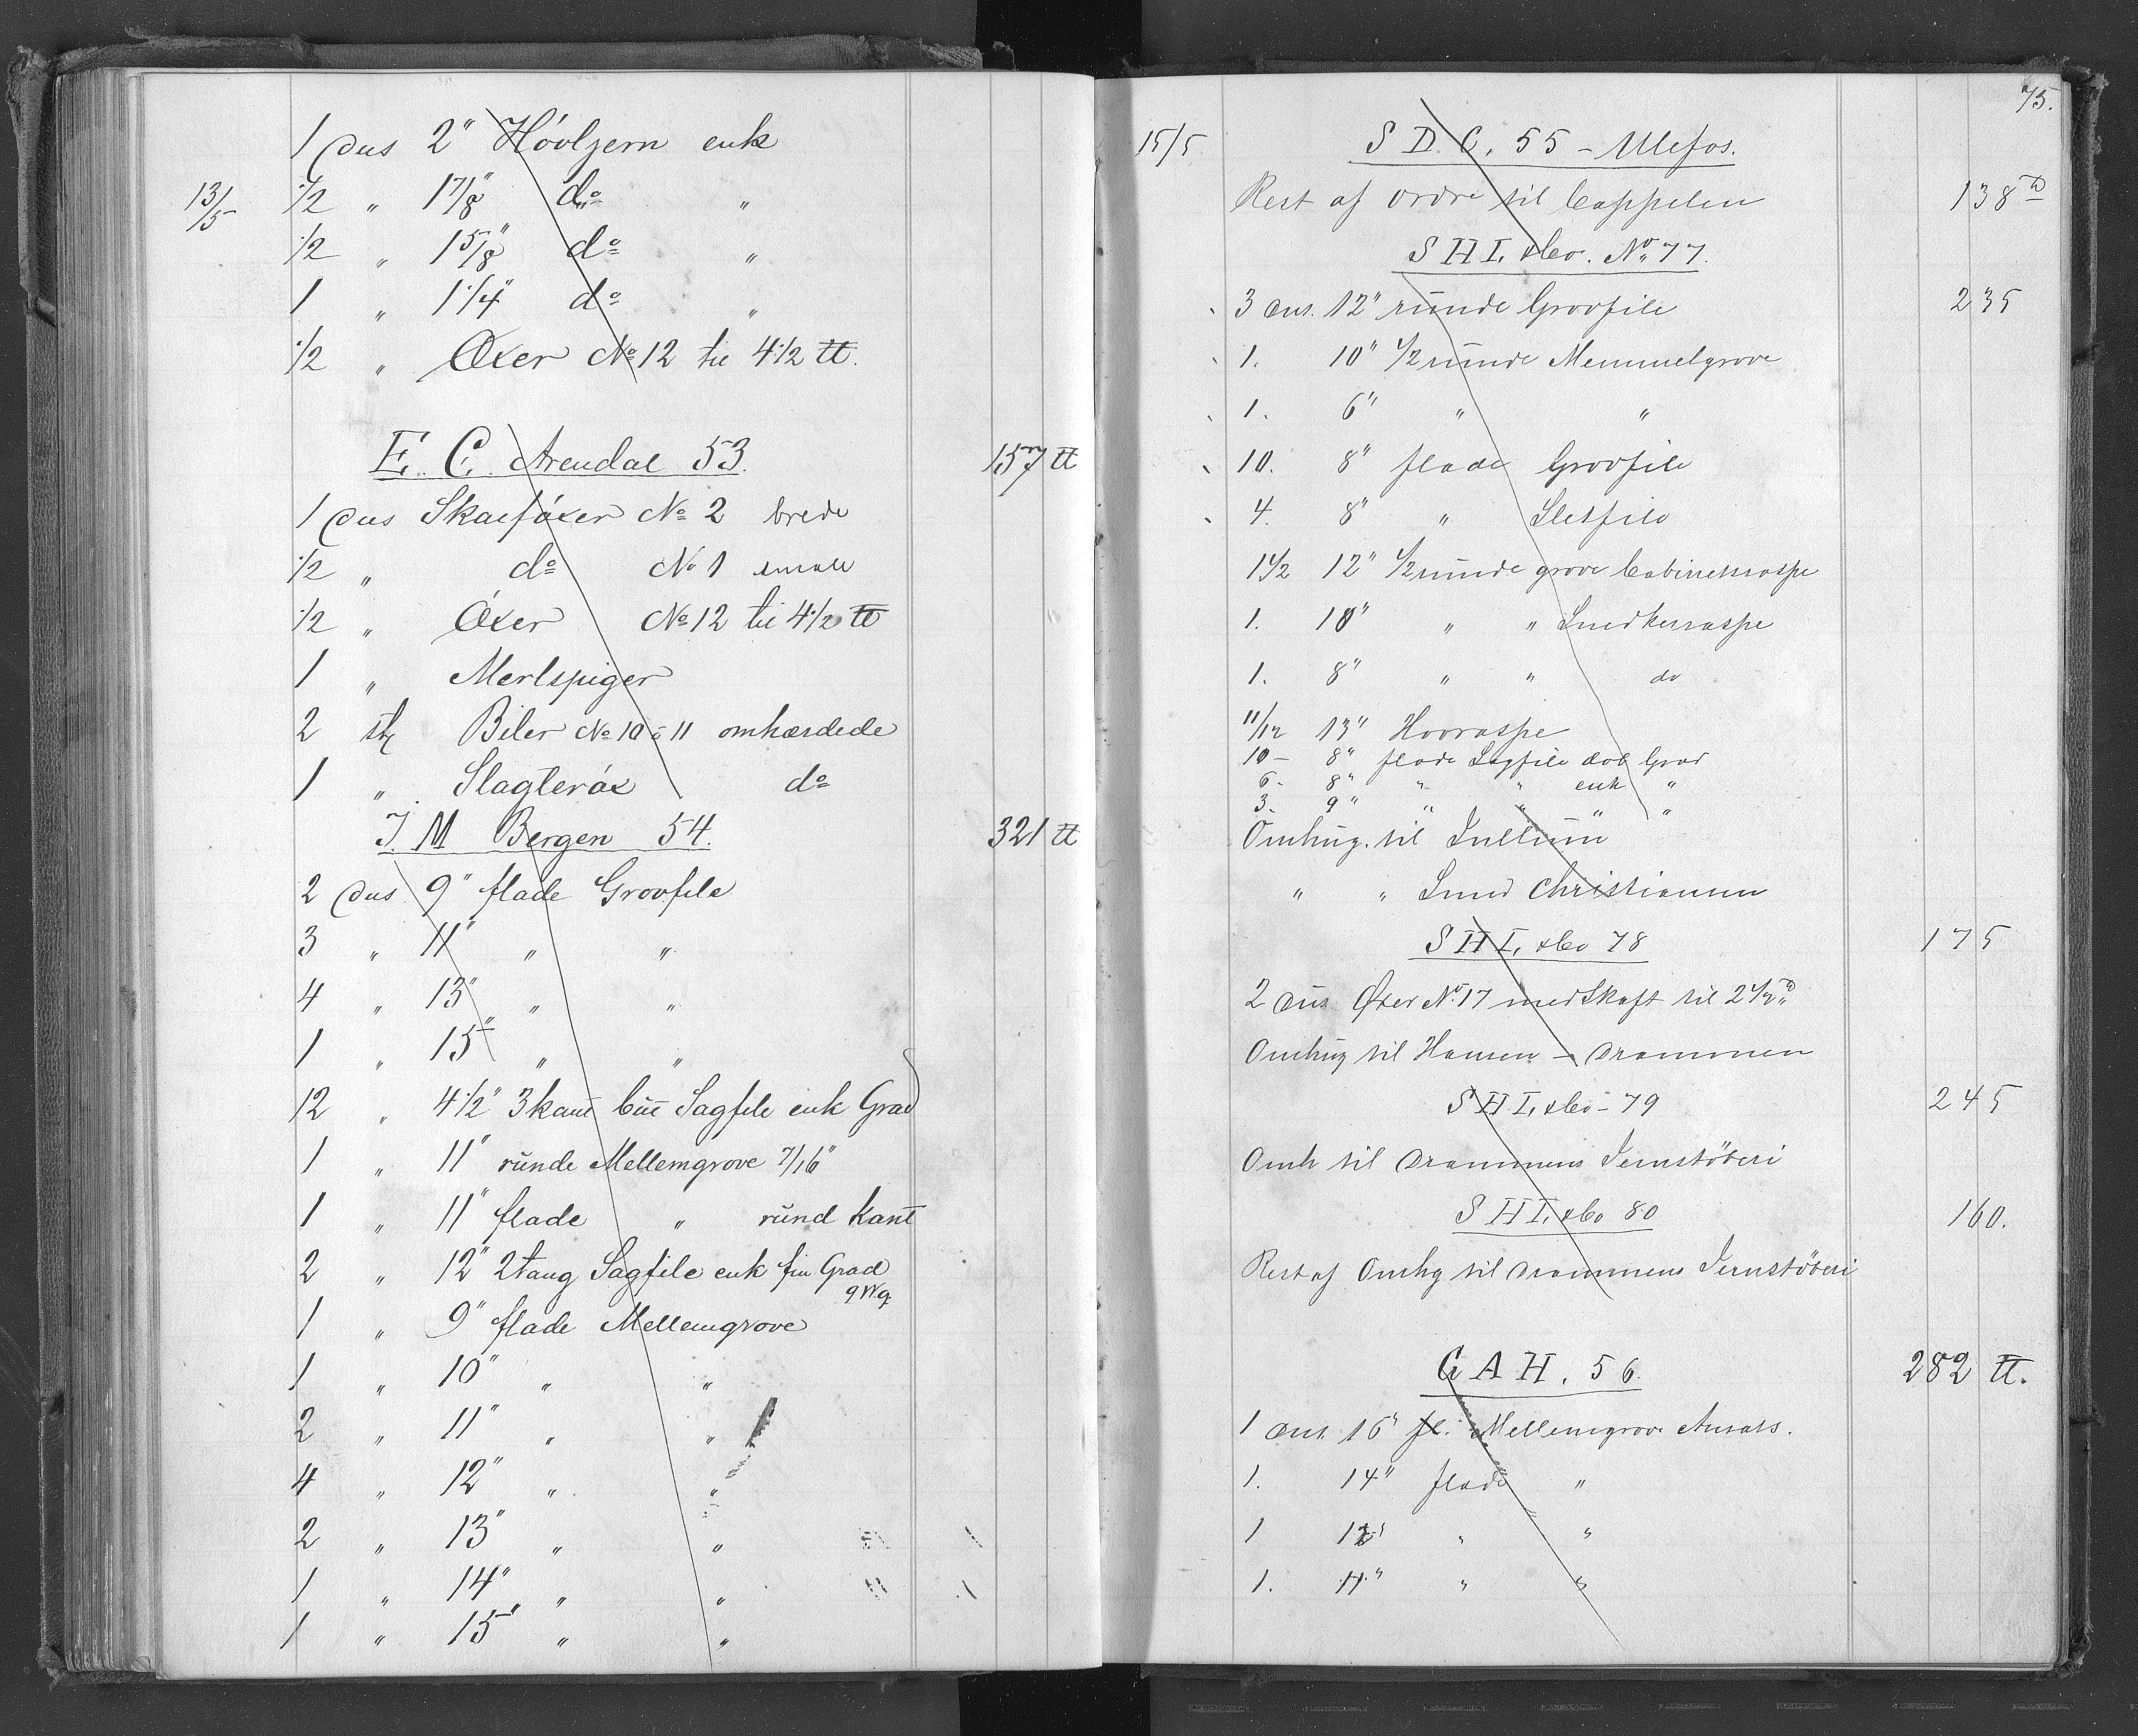 1 Dus 2" Hóvljern enk
13/5 1/2 " 1 7/8" do "
1/2 " 1 5/8" do "
1 " 1 1/4" do "
1/2 " Öxer No 12 til 4 1/2 ℔.
E. C. Arendal 53. 157 ℔
1 Dus Skaföxer No 2 brede
1/2 " do No 1 smale
1/2 " Öxer No 12 til 4 1/2 ℔
1 " Merlspiger
2 stk Biler No 10 & 11 omhærdede
1 " Slagteröx do
J. M Bergen 54. 321 ℔
2 Dus 9" flade Grovfile
3 " 11" " "
4 " 13" " "
1 " 15" " "
12 " 4 1/2" 3kant Sagfile enk Grad
1 " 11" runde Mellemgrove 7/16"
1 " 11" flade " rund Kant
2 " 12" 2tang Sagfile enk fin Grad
1 " 9" flade Mellemgrove
1 " 10" " "
2 " 11" " "
4 " 12" " "
2 " 13" " "
1 " 14" " "
1 " 15" " "
75.
15/5 S D. C. 55 - Ulefos.
Rest af Ordre til Cappelen 138 ℔
S H I. & Co. No 77.
3 Dus. 12" runde Grovfile 235
1. 10" 1/2 runde Memmelgrove
1. 6" " "
10. 8" flade Grovfile
4. 8" " Sletfile
1 1/2 12" 1/2 runde grove Cabinetraspe
1. 10" " " Snedkerraspe
1. 8" " " do
11/12 13" Hovraspe
10 - 8" flade Sagfile dob Grad
6 - 8" " " enk "
3. 9" " " " "
Omhug. til
" " Smed Christiansen
S H I. & Co 78 175
2 Dus Øxer No. 17 med Skaft til 2 1/2 ℔
Omhug til Hansen - Drammen
S H I. & Co - 79 245
Omh til Drammens Jernstöberi
S H I. & Co 80 160.
Rest af Omhg til Drammens Jernstöberi
G A H. 56. 282 ℔.
1 Dus. 16" fl. Mellemgrove Ansats.
1. 14" flade "
1 12" " "
1. 11" " "